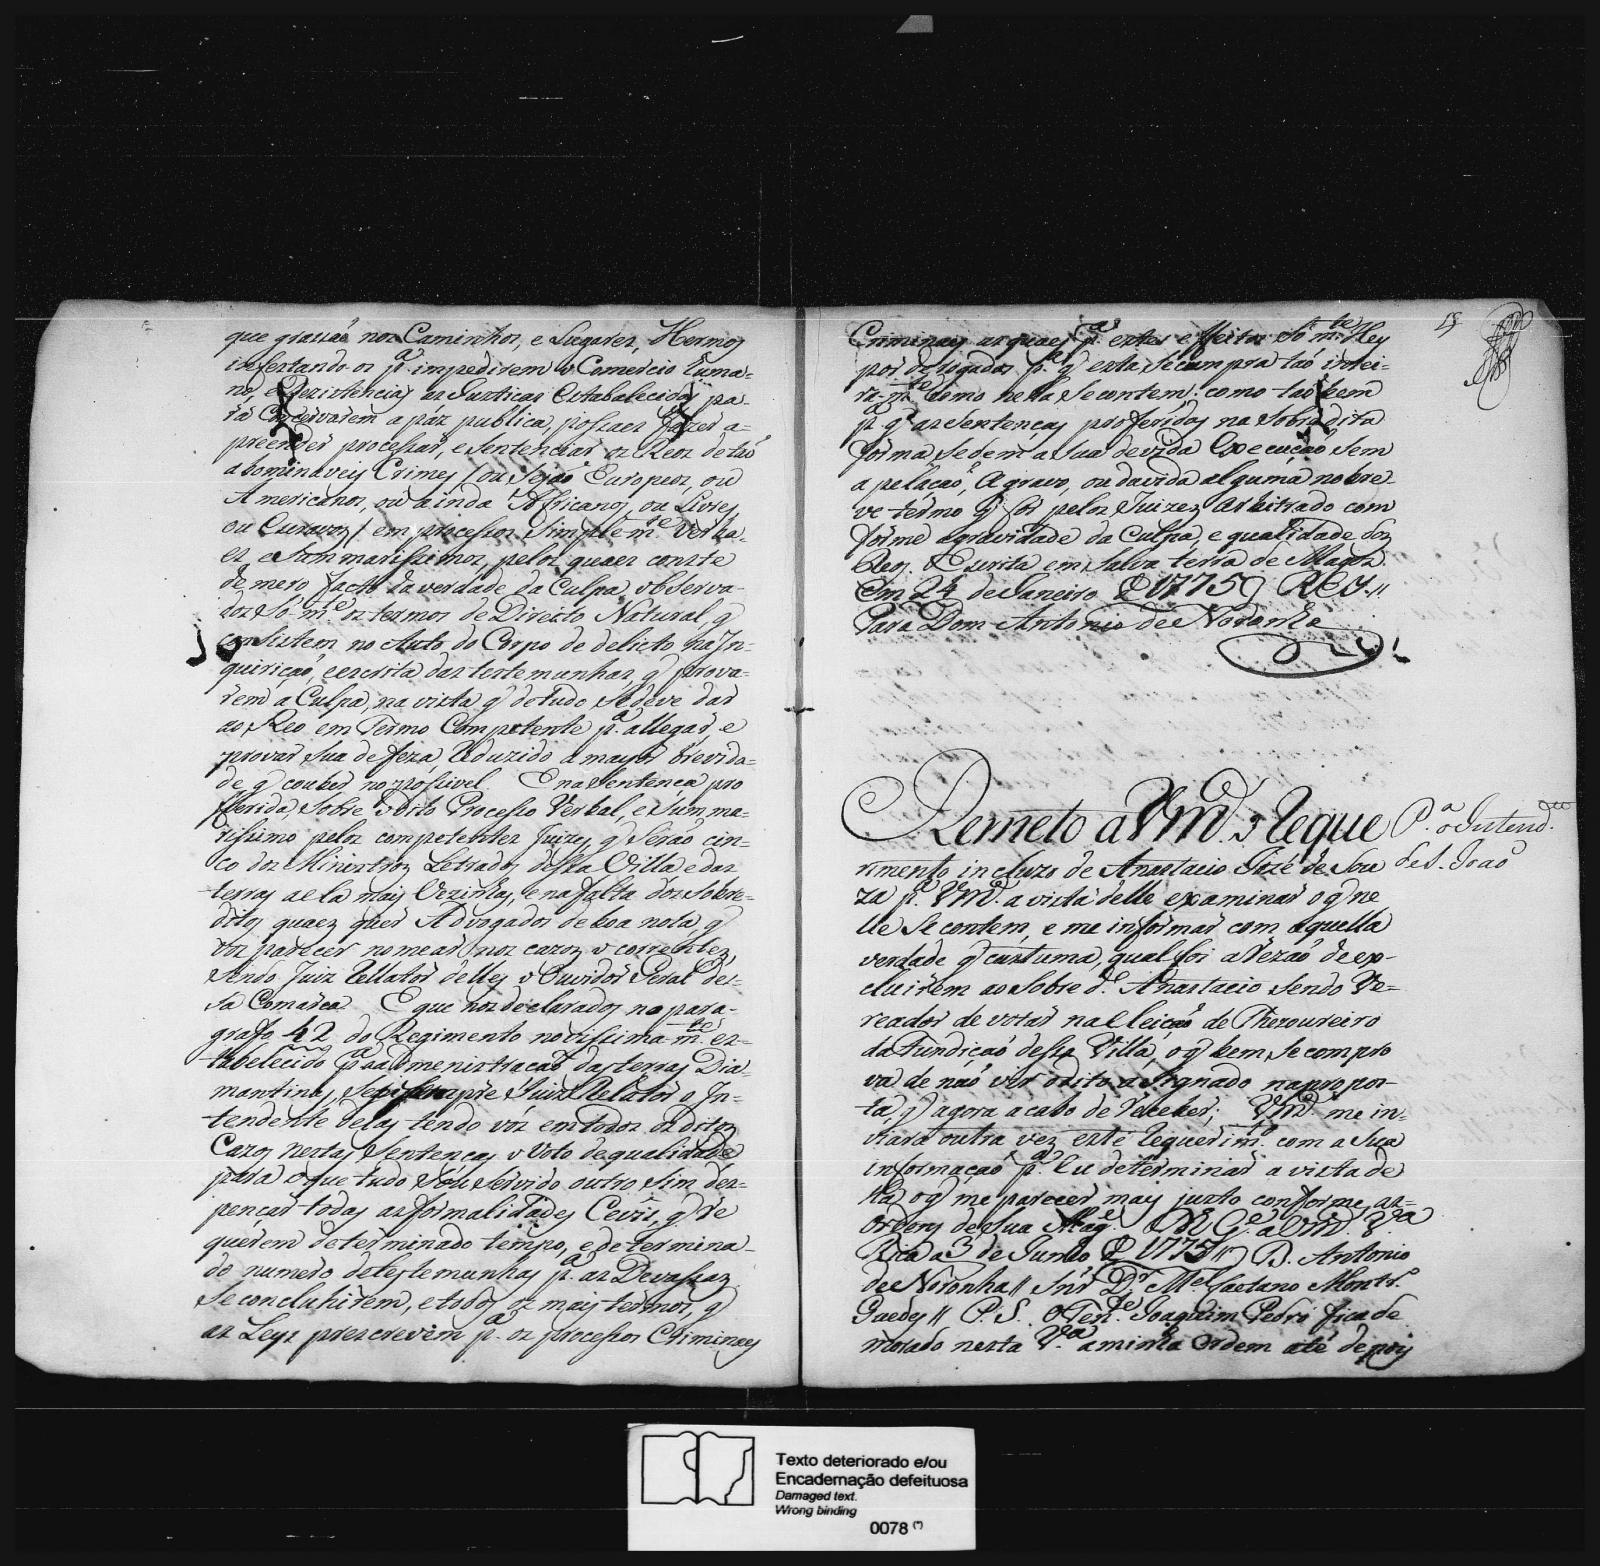 que grassaõ nos Caminhos, e Lugares, Hermos
infestando os p.ª impedirem o Comercio huma=
no, e Rezistencias as Justicas Establecidas pa-
ra Concervarem a páz publica, possaes fazer a=
preender processar, e sentenciar os Reos de taõ
abominaveis Crimes / ou Sejaõ Europeos, ou
Americanos, ou ainda Affricanos, ou Livres,
ou Escravos / em processos Simplesm.te Verba-
es, e Summarissimos, pelos quaes conste
de mero facto da verdade da Culpa observa-
dos Só m.te os termos de Direito Natural, q̃
consistem, no Auto do Corpo de delicto na In=
quiriçaõ, e escrita das testemunhas, q̃ prova-
rem a Culpa, na vista q̃ de tudo se deve dar
ao Reo em Termo Competente p.ª allegar, e
provar sua defeza, Reduzido a mayor brevida=
de q̃ couber no possivel. E na Sentença pro
fferida, sobre o dito Processo Verbal, e Sum ma-
rissimo pelos competentes Juizes, q̃ Seraõ cin-
co dos Ministros Letrados dessa Villa e das
terras a ella mais Vezinhas, e na falta dos Sobre=
ditos quaes quer Advogados de boa nota, q̃
vos parecer nomear nos cazos o correntes,
sendo Juiz Rellator delles o Ouvidor Geral des=
sa Comarca. E que nos declarados no para-
grafo 42 do Regimento novissima-m.te es=
tabelecido p.ª admenistraçaõ das terras Dia=
mantinas, Seja sempre Juiz Relator o In=
tendente delas tendo vóz em todos os ditos
Cazos nestas Sentenças o Voto de qualidade
para o que tudo Sou Servido outro Sim des=
pençar todas as formalidades Cevîs, q̃ re
querem determinado tempo, e determina-
do numero de testemunhas p.ª as Devassas
Se concluhirem, e todos os mais termos, q̃
as Leys prescrevem p.ª os processos Criminaes
Criminaes as quaes p.ª estes effeitos Só m.te Hey
por desligadas p.ª q̃ esta Se cumpra taõ intei-
ra-m.te como nella Se contem: como taõ bem
p.ª q̃ as Sentenças proferidas na Sobredita
forma, se dem a sua devida Execuçaõ sem
apelaçaõ, Agravo, ou duvida alguma no bre-
ve termo q̃ for pelos Juizes Arbitrado com
forme a gravidade da Culpa, e qualidade dos
Reos. Escrita em Salva terra de Magos.
Em 24 de Janeiro D 1775 // REY //
Para Dom Antonio de Noronha
19
Remeto a Vm.ce o Reque
P.ª o Intend.te
de S. Joaõ
rimento incluzo de Anastacio Jozé de Sou
za p.ª Vm.ce a vista delle examinar o q̃ ne
lle Se contem, e me informar com aquella
verdade q̃ custuma, qual foi a Rezaõ de ex-
cluirem ao sobre d.º Anastacio sendo Ve-
reador de votar na Eleiçaõ de Thezoureiro
da Fundiçaõ dessa Villa, o q̃ bem Se compro
va de naõ vir o dito a Signado na propos-
ta, q̃ agora acabo de receber; Vm.ce me in-
viará outra vez este requerim.to com a sua
informaçaõ p.ª Eu determinar a vista de
lla, o q̃ me parecer mais justo conforme as=
ordens de sua Mag.e D.s G.e a Vm.ce V.ª
Rica a 3 de Junho D 1775 // D. Anttonio
de Noronha // Snr' D.r M.el Caetano Montr.º
Guedes // P. S. O Ten.te Joaquim Pedro fica de
morado nesta V.ª a minha Ordem até depois
Texto deteriorado e/ou
Encadernação defeituosa
Damaged text.
Wrong binding
0078 (*)